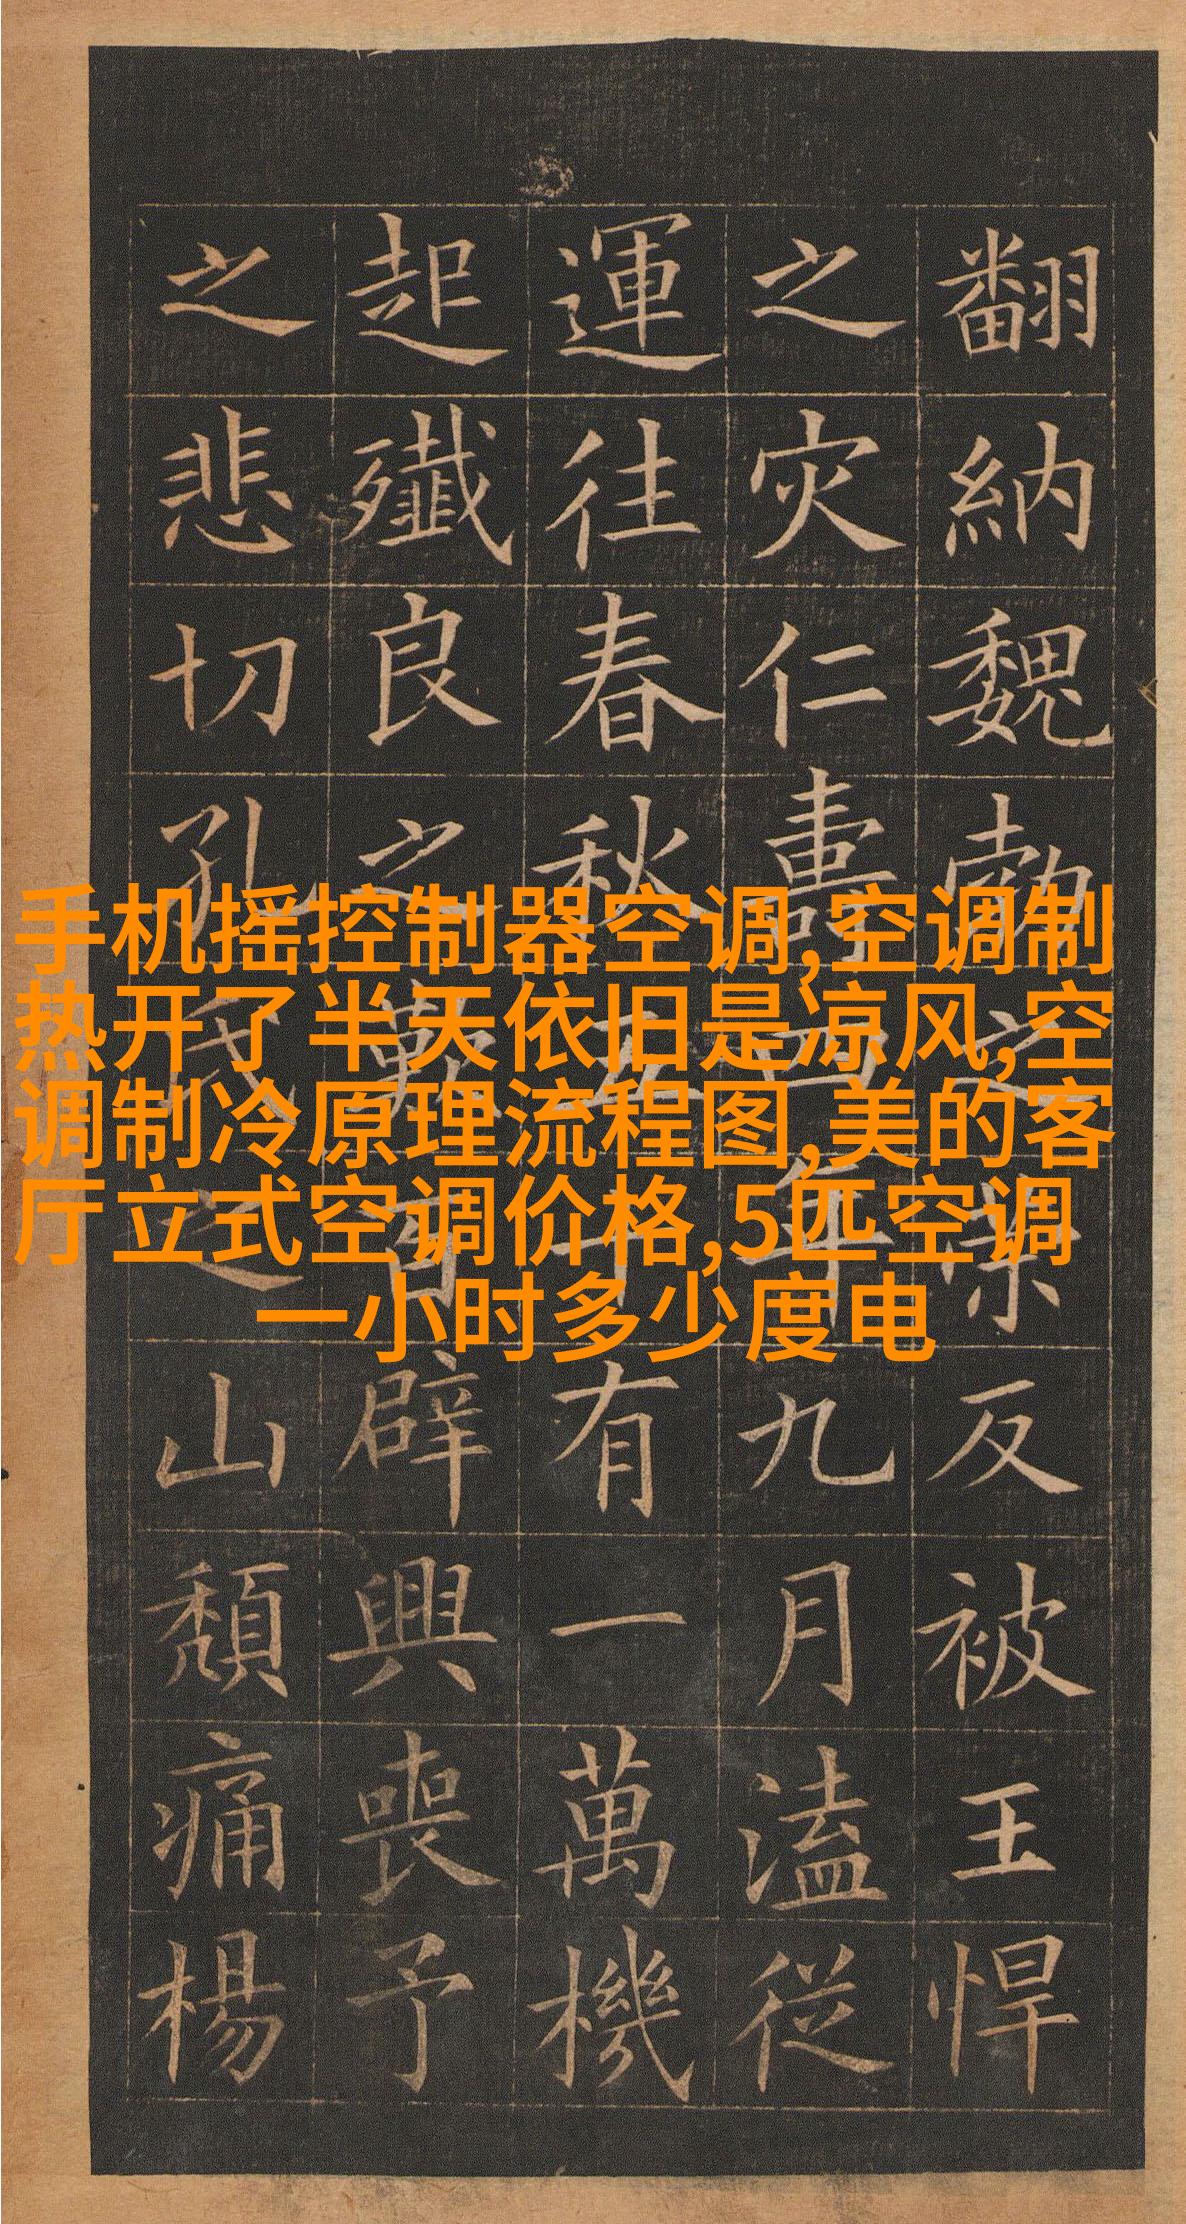 翻納魏勃之反被王悍
之灾仁壽四年九月溘從
運往春秋五十有一萬機
起殲良之歎百辟興喪予
之悲切孔氏之山頹痛楊
手机摇控制器空调,空调制
热开了半天依旧是凉风,空
调制冷原理流程图,美的客
厅立式空调价格,5匹空调
一小时多少度电